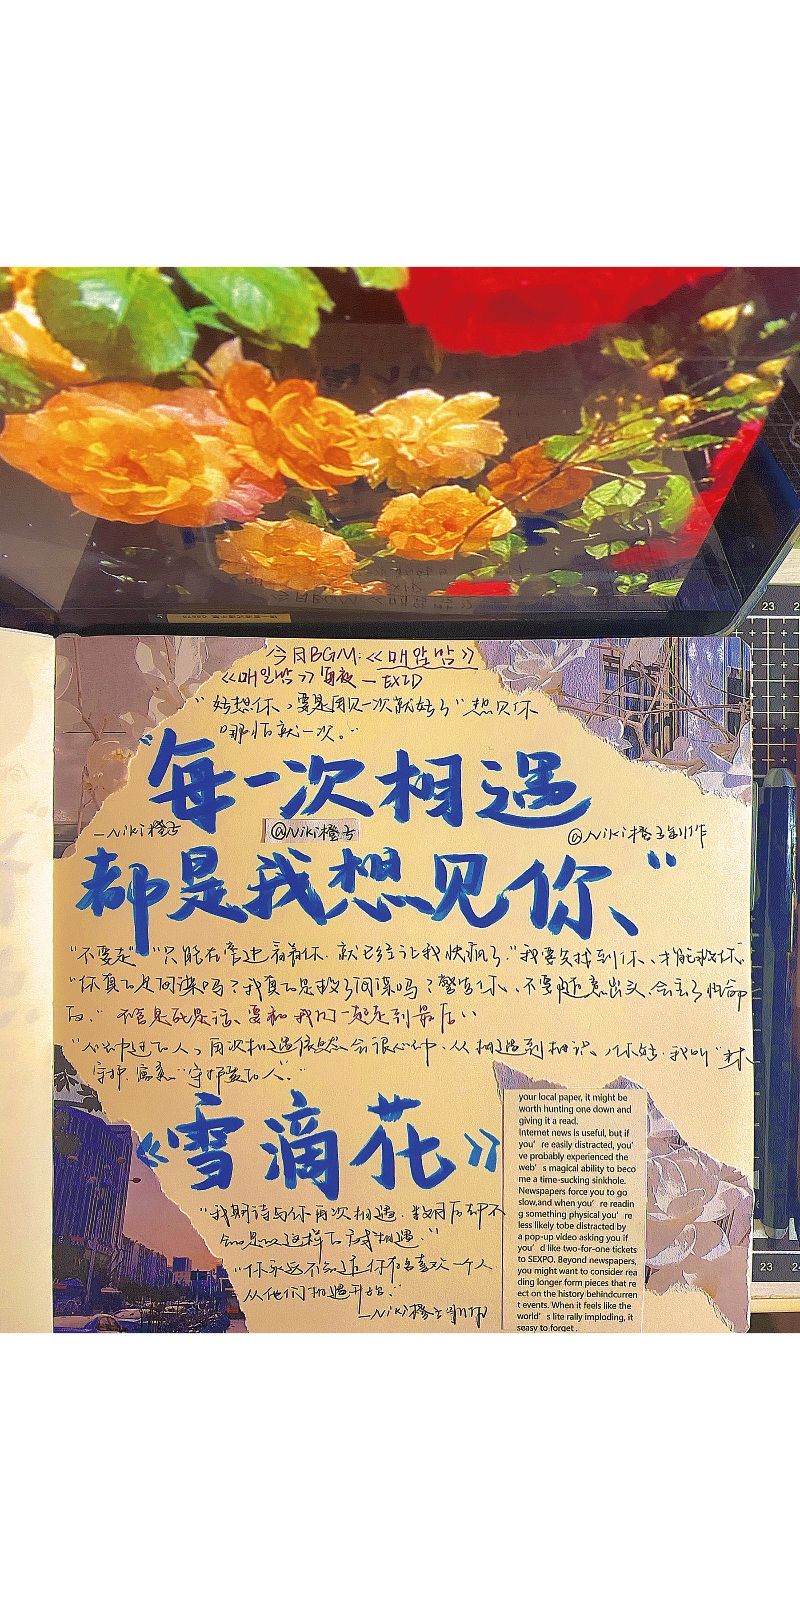 今日BGM:《매일밤》
《매일밤》每夜 — EXID
“好想你,要是用见一次就好了”想见你
哪怕就一次。”
“每一次相遇
—Niki橙子 @Niki橙子 @Niki橙子制作
都是我想见你、”
“不要走”“只能在旁边看着你.就已经让我快疯了.”我要先找到你、才能救你.
“你真的是同谋吗?我真的是 同谋吗?警告你、不要随意出头.会丢了性命
的.”不管是死是活、要和我们一起走到最后
的人,再次相遇依然会很心动、从相遇到相识、你好,我叫
守护,寓意“守护 的人”.
《雪滴花》
“我期待与你再次相遇. 却不
知是以这样的方式相遇.”
“你永远不知道你有多喜欢一个人
从他们相遇开始.”
—Niki橙子制作
your local paper, it might be
worth hunting one down and
giving it a read.
Internet news is useful, but if
you’ re easily distracted, you’
ve probably experienced the
web’ s magical ability to beco
me a time-sucking sinkhole.
Newspapers force you to go
slow,and when you’ re readin
g something physical you’ re
less likely tobe distracted by
a pop-up video asking you if
you’ d like two-for-one tickets
to SEXPO. Beyond newspapers,
you might want to consider rea
ding longer form pieces that re
ect on the history behindcurren
t events. When it feels like the
world’ s lite rally imploding, it
seasy to forget .
23
24
23
24